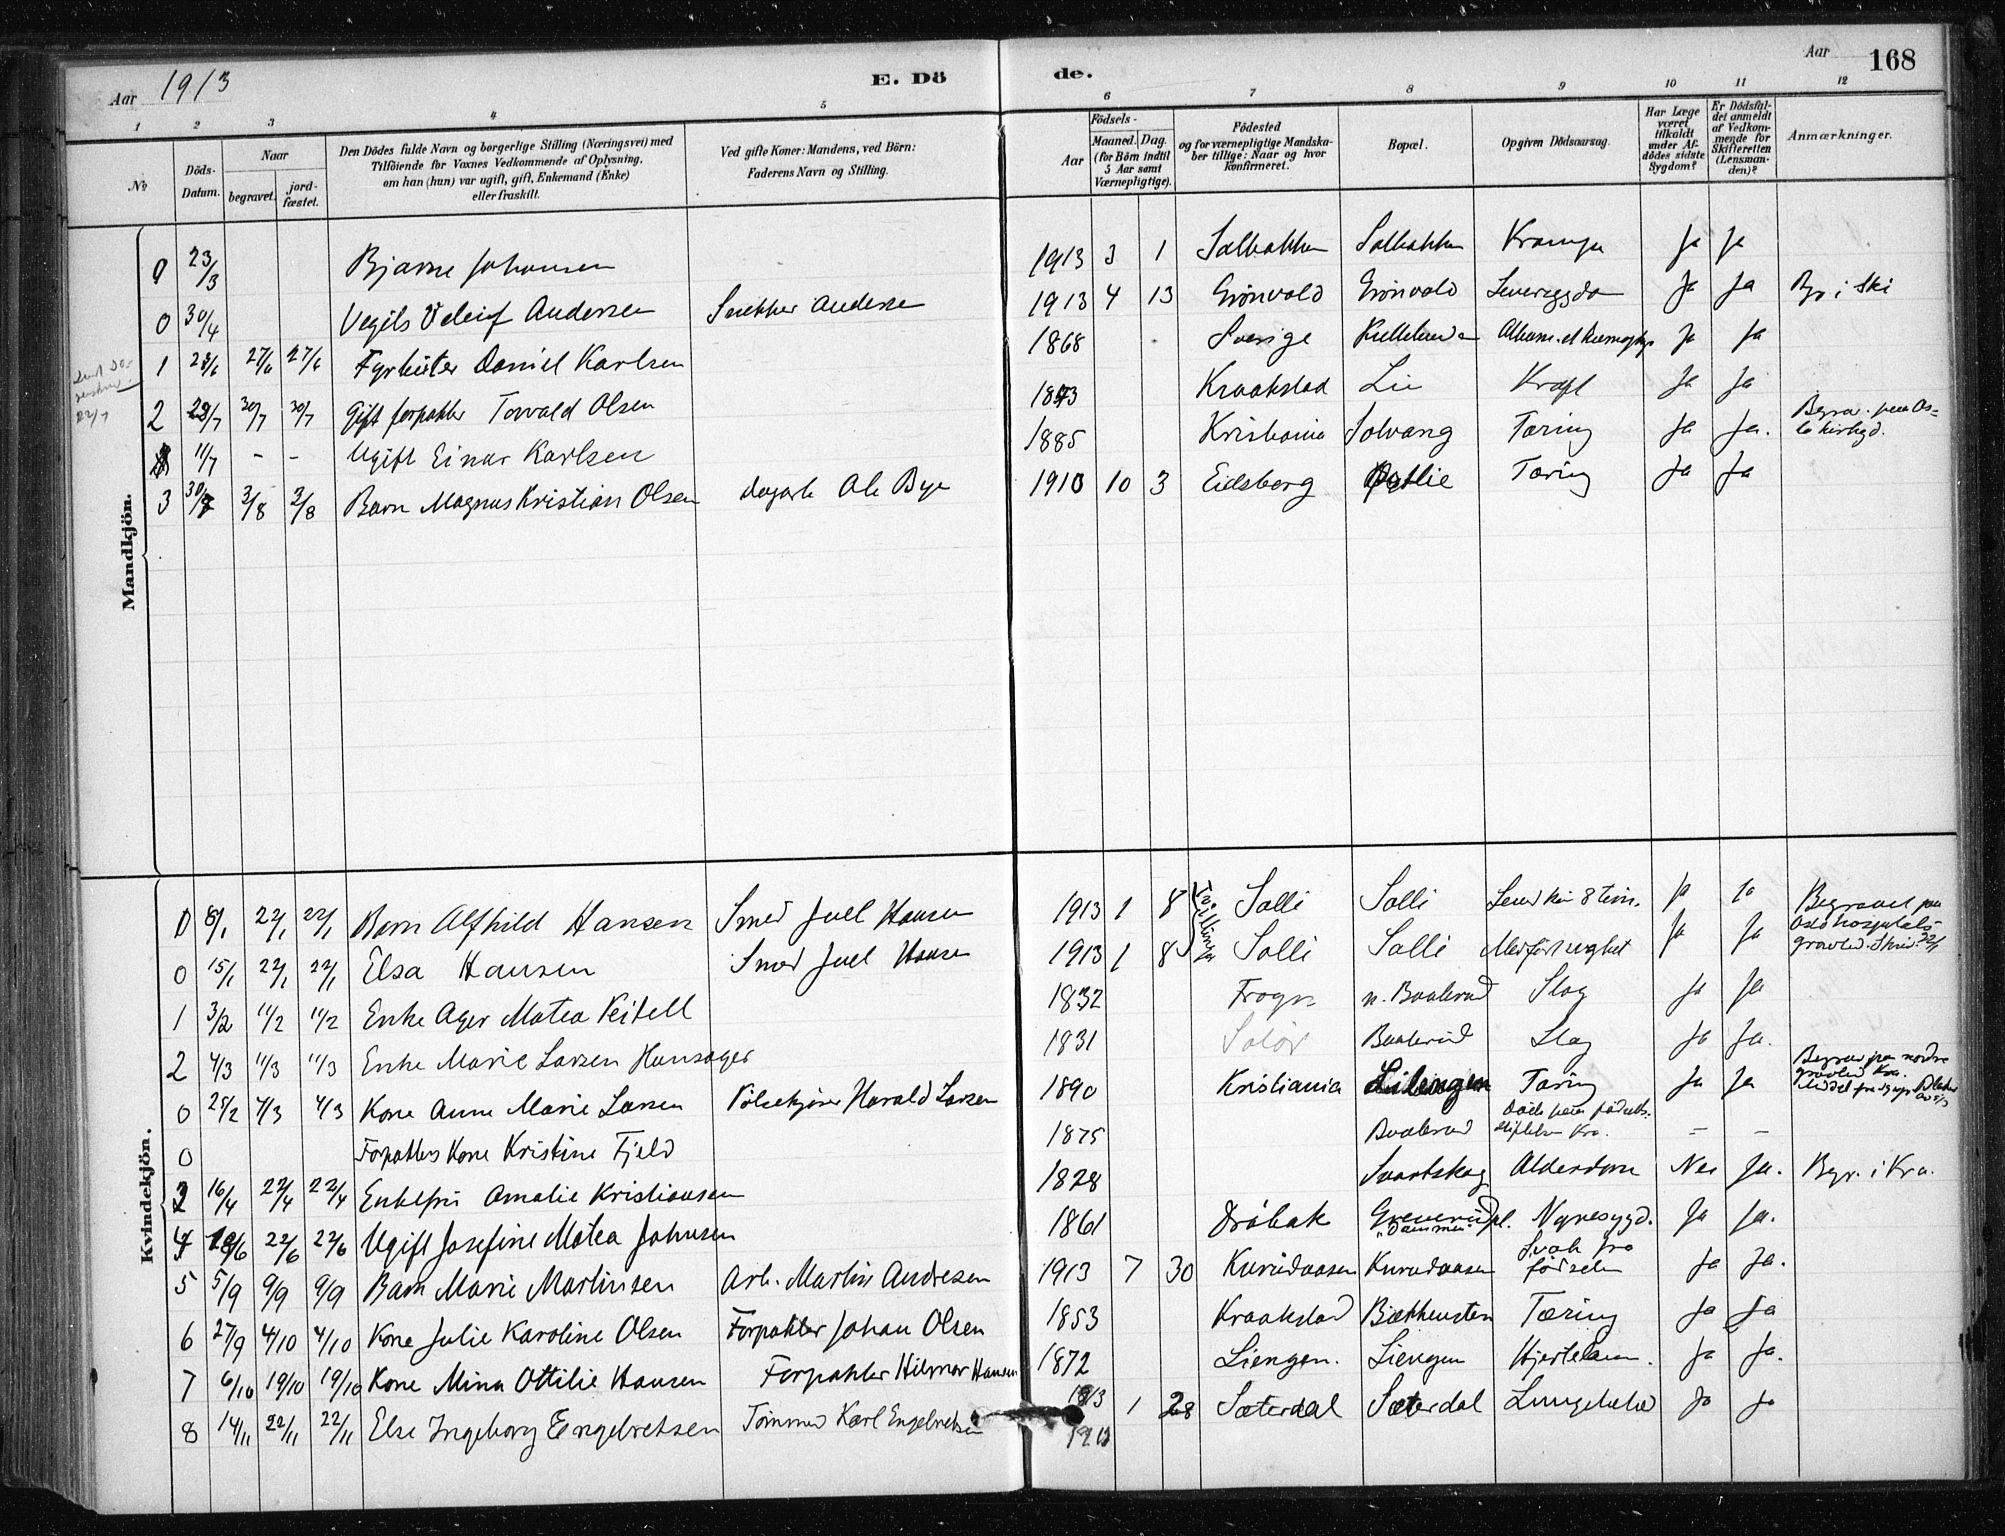 Aar 1913 E. Dö de. Aar 168
1 2 3 4 5 6 7 8 9 10 11 12
No
Döds-Datum.
Naar
begravet.
jord-fæstet.
Den Dödes fulde Navn og borgerlige Stilling (Næringsvei) med
Tilföiende for Voxnes Vedkommende af Oplysning,
om han (hun) var ugift, gift, Enkemand (Enke)
eller fraskilt.
Ved gifte Koner: Mandens, ved Börn:
Faderens Navn og Stilling.
Födsels-
Aar
Maaned. Dag.
(for Börn indtil
5 Aar samt
Værnepligtige).
Födested
og for værnepligtige Mandska-
ber tillige: Naar og hvor
konfirmeret.
Bopæl.
Opgiven Dödsaarsag.
Har Læge
været
tilkaldt
under Af-
dödes sidste
Sygdom?
Er Dödsfal-
det anmeldt
af Vedkom-
mende for
Skifteretten
(Lensman-
den)?
Anmærkninger.
Mandkjön.
0 23/3 Bjarne Johansen 1913 3 1 Solbakken Solbakken Krampe Ja Ja
0 30/4 Andersen Snekker Andersen 1913 4 13 Grönvold Grönvold Ja Ja Begr. i Ski
1 27/6 27/6 Fyrböter Daniel Karlsen 1868 Sverige Ja Ja
2 28/7 30/7 30/7 Gift forpakter Torvald Olsen Kraakstad Lie Kræft Ja Ja
11/7 - - Ugift Einar Karlsen 1885 Kristiania Solvang Tæring Ja Ja. Begrav. paa Os-
lo kirkegd.
3 30/7 3/8 3/8 Barn Magnus Kristian Olsen dagarb. Ole Bye 1910 10 3 Eidsberg Tæring Ja Ja
Kvindekjön.
0 8/1 22/1 22/1 Barn Alfhild Hansen Smed Juel Hansen 1913 1 8 Tvillinger Solli Solli Levet kun 8 tim. Ja Ja Begravet paa
0 15/1 22/1 22/1 Elsa Hansen Smed Juel Hansen 1913 1 8 Solli Solli Medfödt svaghet Ja Ja
1 3/2 11/2 11/2 Enke Ager Matea Keitell 1832 Frogn n. Baalerud Slag Ja Ja
2 4/3 11/3 11/3 Enke Marie Larsen Hansager 1831 Solör Baalerud Slag Ja Ja.
0 25/2 4/3 4/3 Kone Anne Marie Larsen Pölsekjörer Harald Larsen 1890 Kristiania Lilengen Tæring Ja Ja Begrav paa nordre
gravlud Kra.
0 Forpakters Kone Kristine Fjeld 1875 Baalerud Döde paa födsels-
stiftelsen Kra. - -
3 16/4 22/4 22/4 Enkefru Amalie Kristiansen 1828 Svartskog Alderdom Nei Ja. Begr. i Kra.
4 22/6 22/6 Ugift Josefine Matea Johnsen 1861 Dröbak Greverud pl. "Dammen" Nyresygd. Ja Ja.
5 5/9 9/9 9/9 Barn Marie Martinsen Arb. Martin Andresen 1913 7 30 Kurudaasen Kurudaasen Svak fra
födselen Ja Ja.
6 27/9 4/10 4/10 Kone Julie Karoline Olsen Forpakter Johan Olsen 1853 Kraakstad Bækkensten Tæring Ja Ja
7 6/10 19/10 19/10 Kone Mina Ottilie Hansen Forpakter Hilmar Hansen 1872 Liengen. Liengen Hjertelam. Ja Ja.
8 14/11 22/11 22/11 Else Ingeborg Engebretsen Tömmerm Karl Engebretsen 1913 1 28 Sæterdal Sæterdal Ja Ja